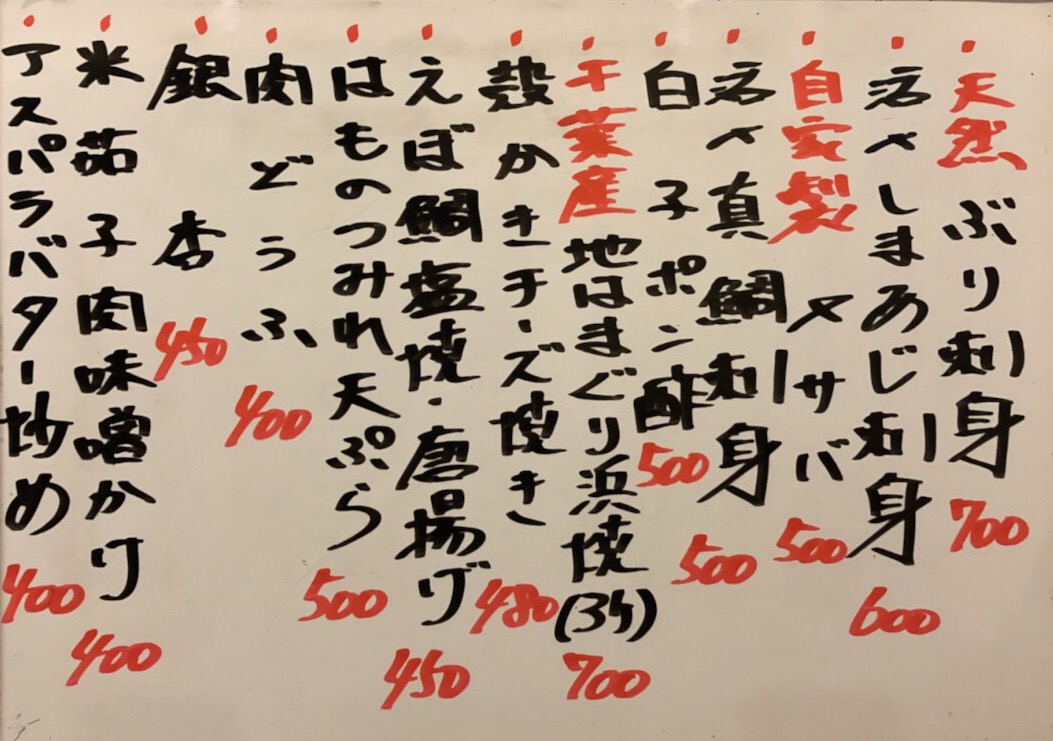 天然ぶり刺身 700
活〆しまあじ刺身 600
自家製〆サバ 500
活〆真鯛刺身 500
白子ポン酢 500
千葉産地はまぐり浜焼(3ケ) 700
殻かきチーズ焼き 480
えぼ鯛塩焼・唐揚げ 450
はものつみれ天ぷら 500
肉どうふ 400
銀杏 450
米茄子肉味噌かけ 400
アスパラバター炒め 400